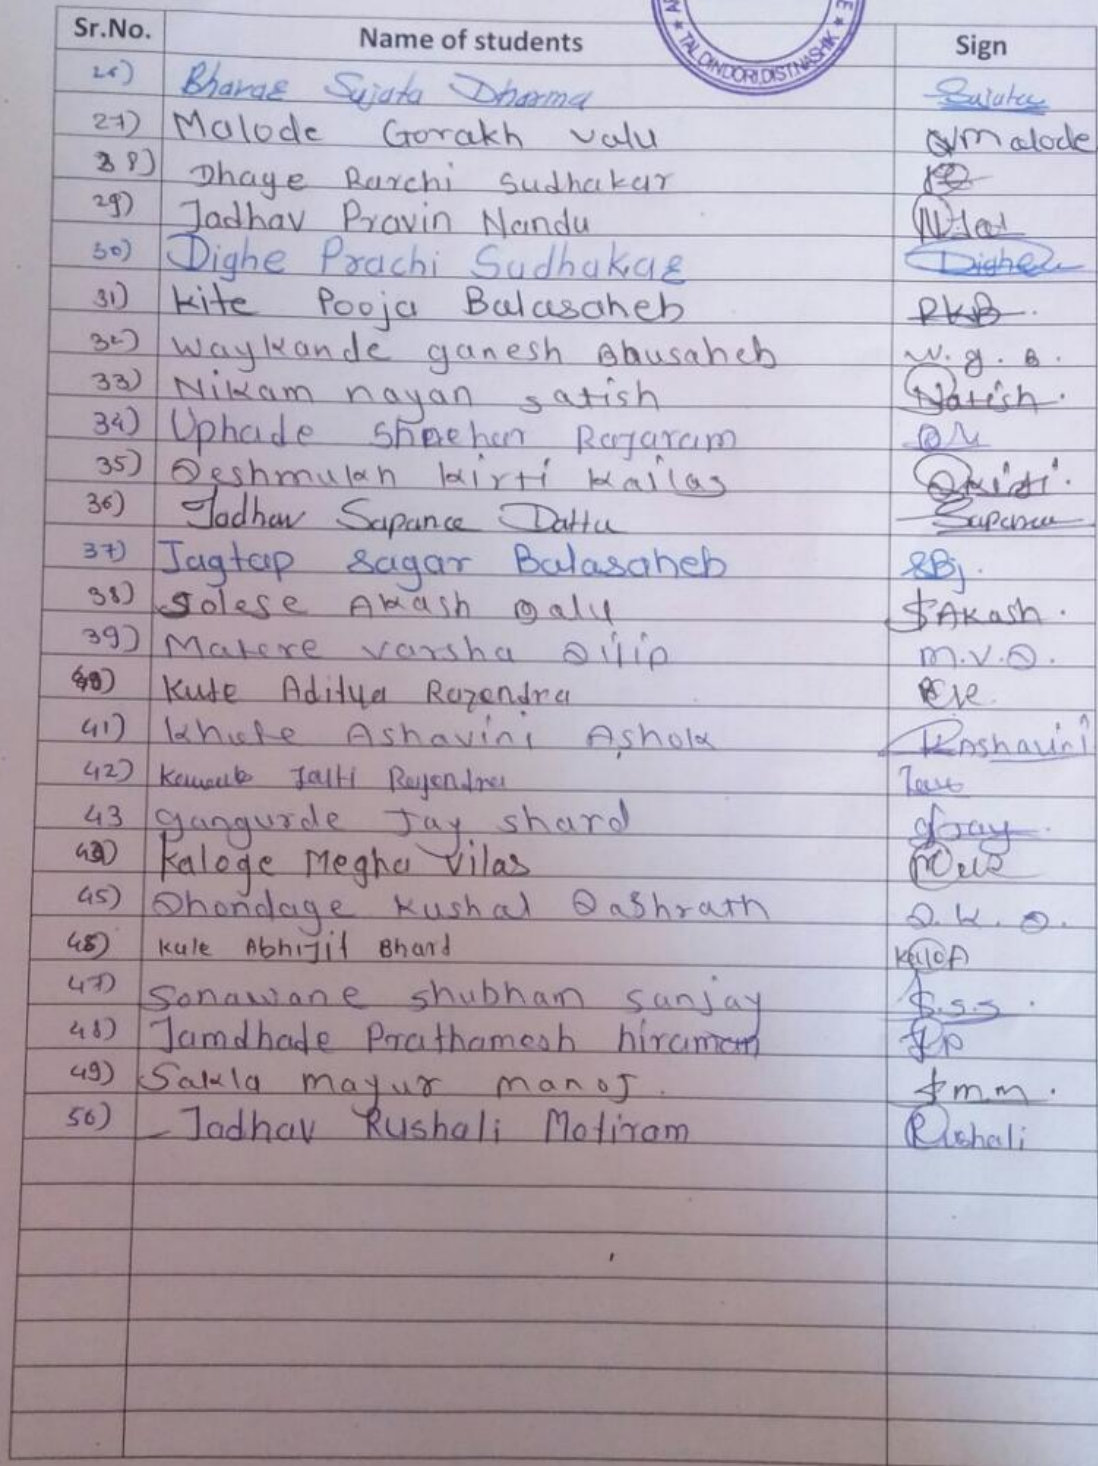 Sr.No. Name of students Sign
TAL.DINDORI.DIST.NASHIK
26) Sujata Dharma Sujata
27) Malode Gorakh valu Malode
28) Dhage Sudhakar
29) Jadhav Pravin Nandu
30) Dighe Prachi Sudhakar Dighe
31) Kite Pooja Balasaheb PKB
32) Waykande ganesh Bhausaheb W. g. B.
33) Nikam nayan satish Natish.
34) Uphade Rajaram
35) Deshmukh kirti kailas Dkirti.
36) Jadhav Sapana Dattu Sapana
37) Jagtap sagar Balasaheb SBj.
38) Solese Akash Dalu SAkash.
39) Matere varsha Dilip M.V.D.
40) Kute Aditya Rajendra
41) khute Ashavini Ashok KAshavini
42) Rajendra
43 gangurde Jay shard gJay.
44) Kaloge Megha Vilas
45) Dhondage Kushal Dashrath D.K.D.
46) Kule Abhijit Bhard
47) Sonawane shubham sanjay S.s.s.
48) Jamdhade Prathamesh hiraman Jp
49) Sakla mayur manoj. Smm.
50) Jadhav Rushali Motiram Rushali